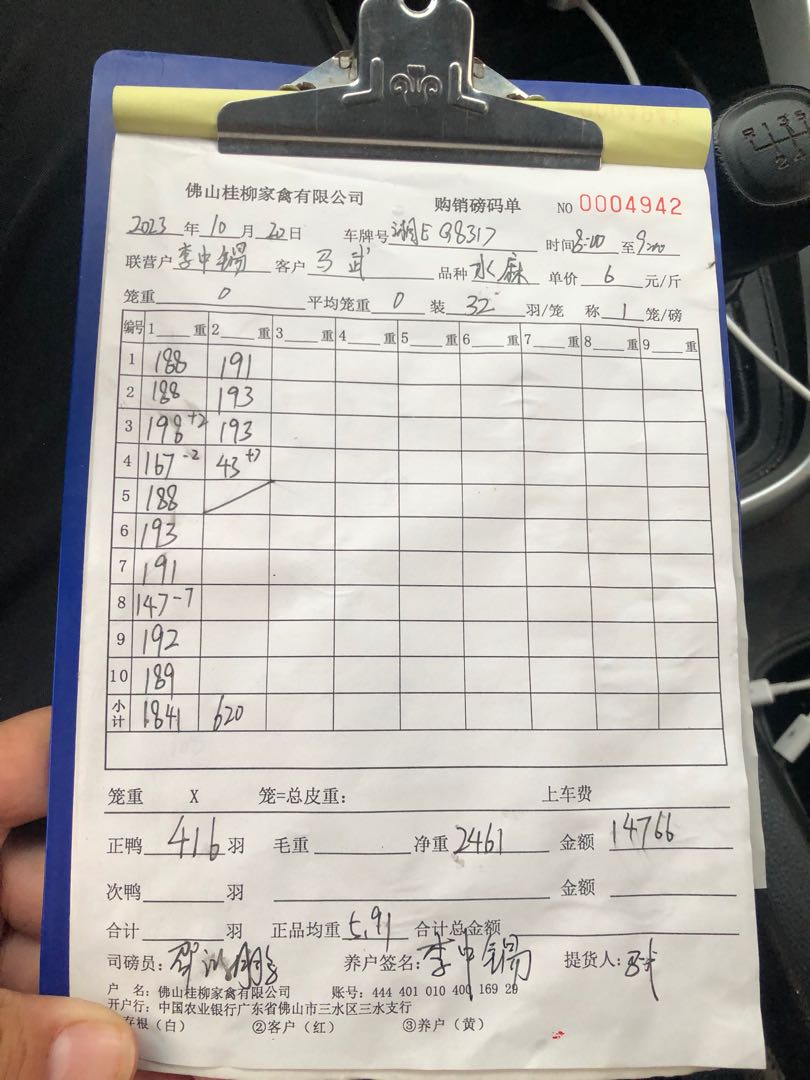 佛山桂柳家禽有限公司 购销磅码单 NO 0004942
2023 年 10 月 20 日 车牌号 湘E G8317 时间 8:00 至 9:00
联营户 李中锡 客户 马武 品种 水麻 单价 6 元/斤
笼重 0 平均笼重 0 装 32 羽/笼 称 1 笼/磅
编号 1 重 2 重 3 重 4 重 5 重 6 重 7 重 8 重 9 重
1 188 191
2 188 193
3 198+2 193
4 167-2 43+7
5 188
6 193
7 191
8 147-7
9 192
10 189
小计 1841 620
笼重 X 笼=总皮重: 上车费
正鸭 416 羽 毛重 净重 2461 金额 14766
次鸭 羽 金额
合计 羽 正品均重 5.91 合计总金额
司磅员: 养户签名: 李中锡 提货人:
户 名: 佛山桂柳家禽有限公司 账号: 444 401 010 400 169 29
开户行: 中国农业银行广东省佛山市三水区三水支行
存根(白) ②客户(红) ③养户(黄)